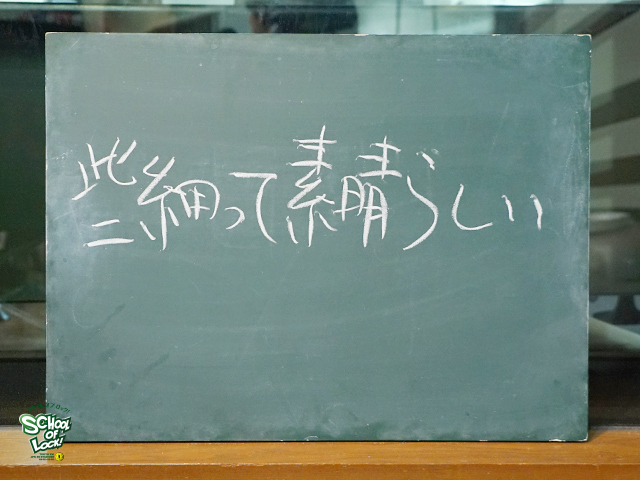 些細って素晴らしい
SCHOOL OF LOCK!